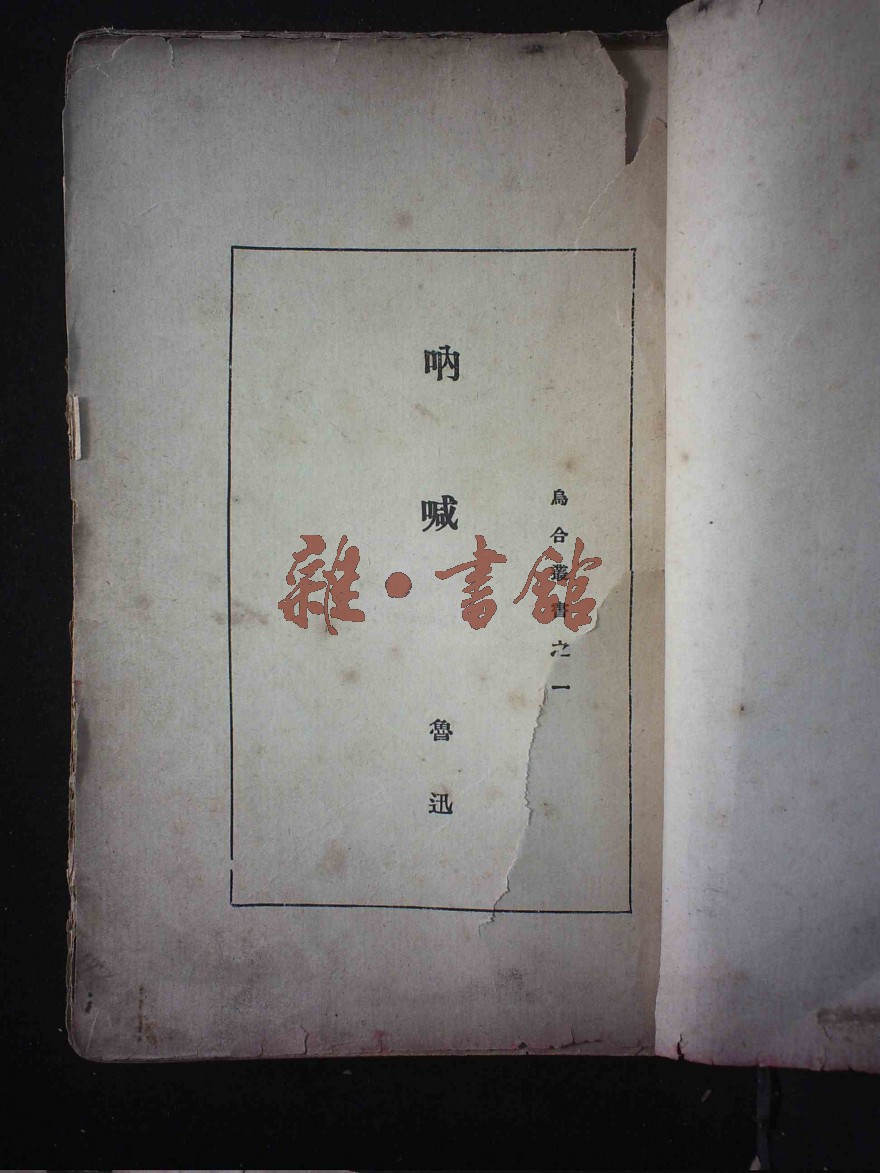 烏合叢書之一
吶喊
魯迅
雜·書館